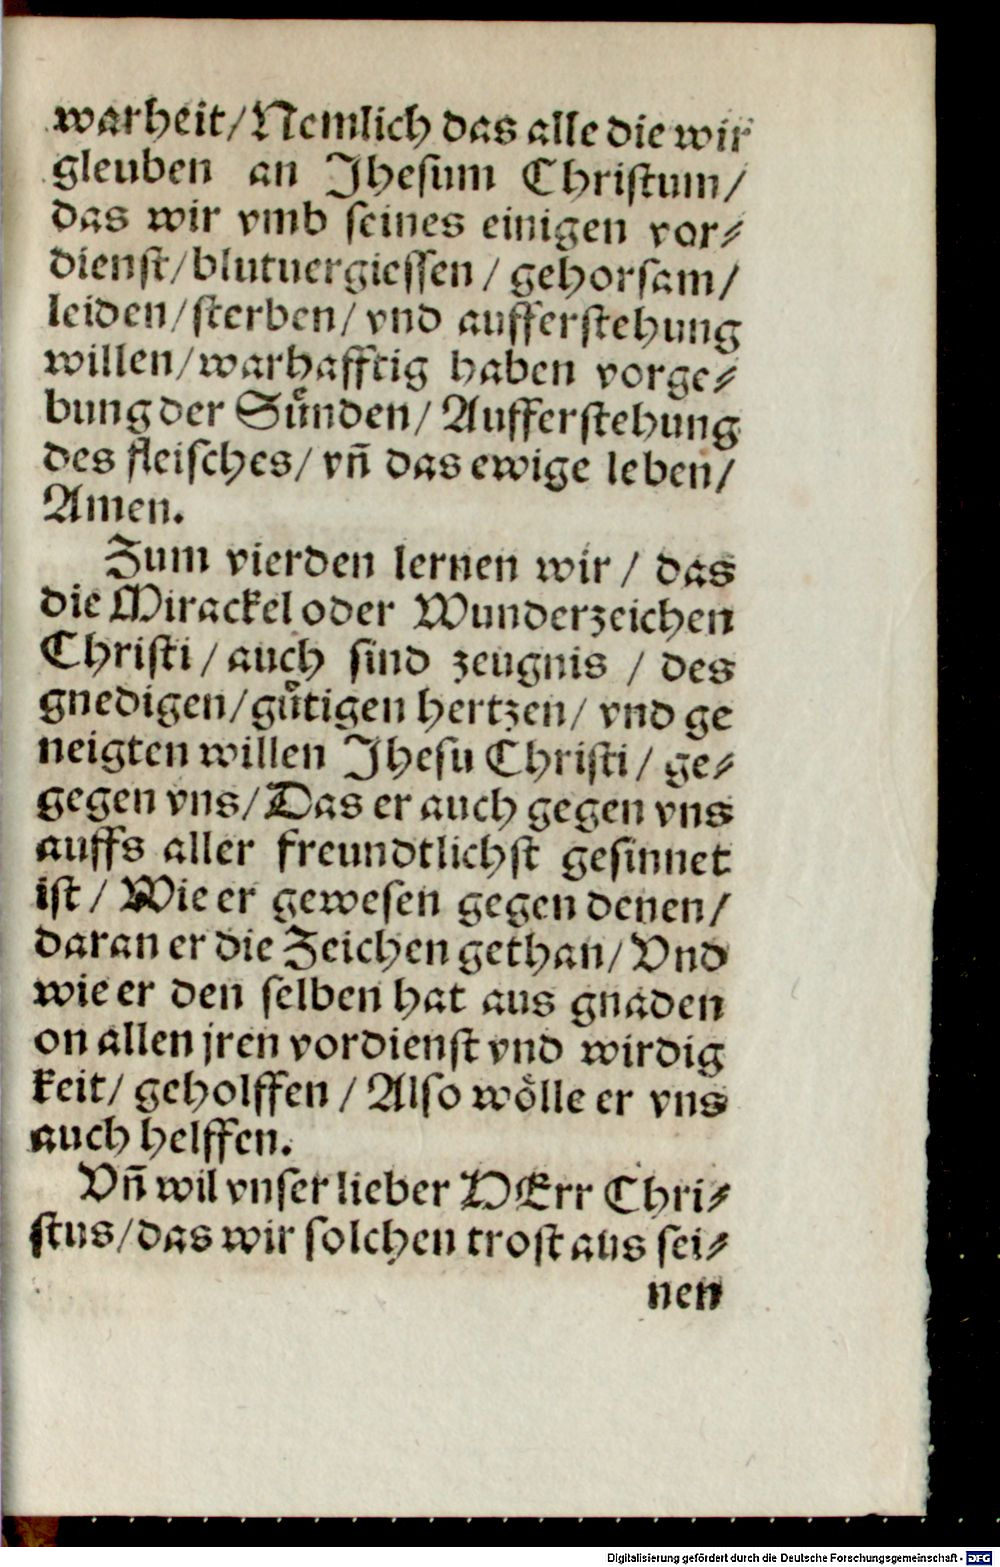 warheit/Nemlich das alle die wir
gleuben an Jhesum Christum/
das wir vmb seines einigen vor⸗
dienst/blutuergiessen / gehorsam/
leiden/sterben/ vnd aufferstehung
willen/warhafftig haben vorge⸗
bung der Suͤnden/ Aufferstehung
des fleisches/ vñ das ewige leben/
Amen.
Zum vierden lernen wir / das
die Mirackel oder Wunderzeichen
Christi / auch sind zeugnis / des
gnedigen/guͤtigen hertzen/ vnd ge
neigten willen Jhesu Christi/ ge⸗
gegen vns/Das er auch gegen vns
auffs aller freundtlichst gesinnet
ist / Wie er gewesen gegen denen/
daran er die Zeichen gethan/ Vnd
wie er den selben hat aus gnaden
on allen jren vordienst vnd wirdig
keit/ geholffen / Also woͤlle er vns
auch helffen.
Vñ wil vnser lieber HErr Chri⸗
stus/das wir solchen trost aus sei⸗
nen
Digitalisierung gefördert durch die Deutsche Forschungsgemeinschaft - DFG